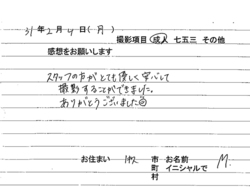 31年2月4日(月)
撮影項目 成人 七五三 その他
感想をお願いします
スタッフの方がとても優しく安心して
撮影することができました。
ありがとうございました
お住まい 市 お名前 M.
町 イニシャルで
村